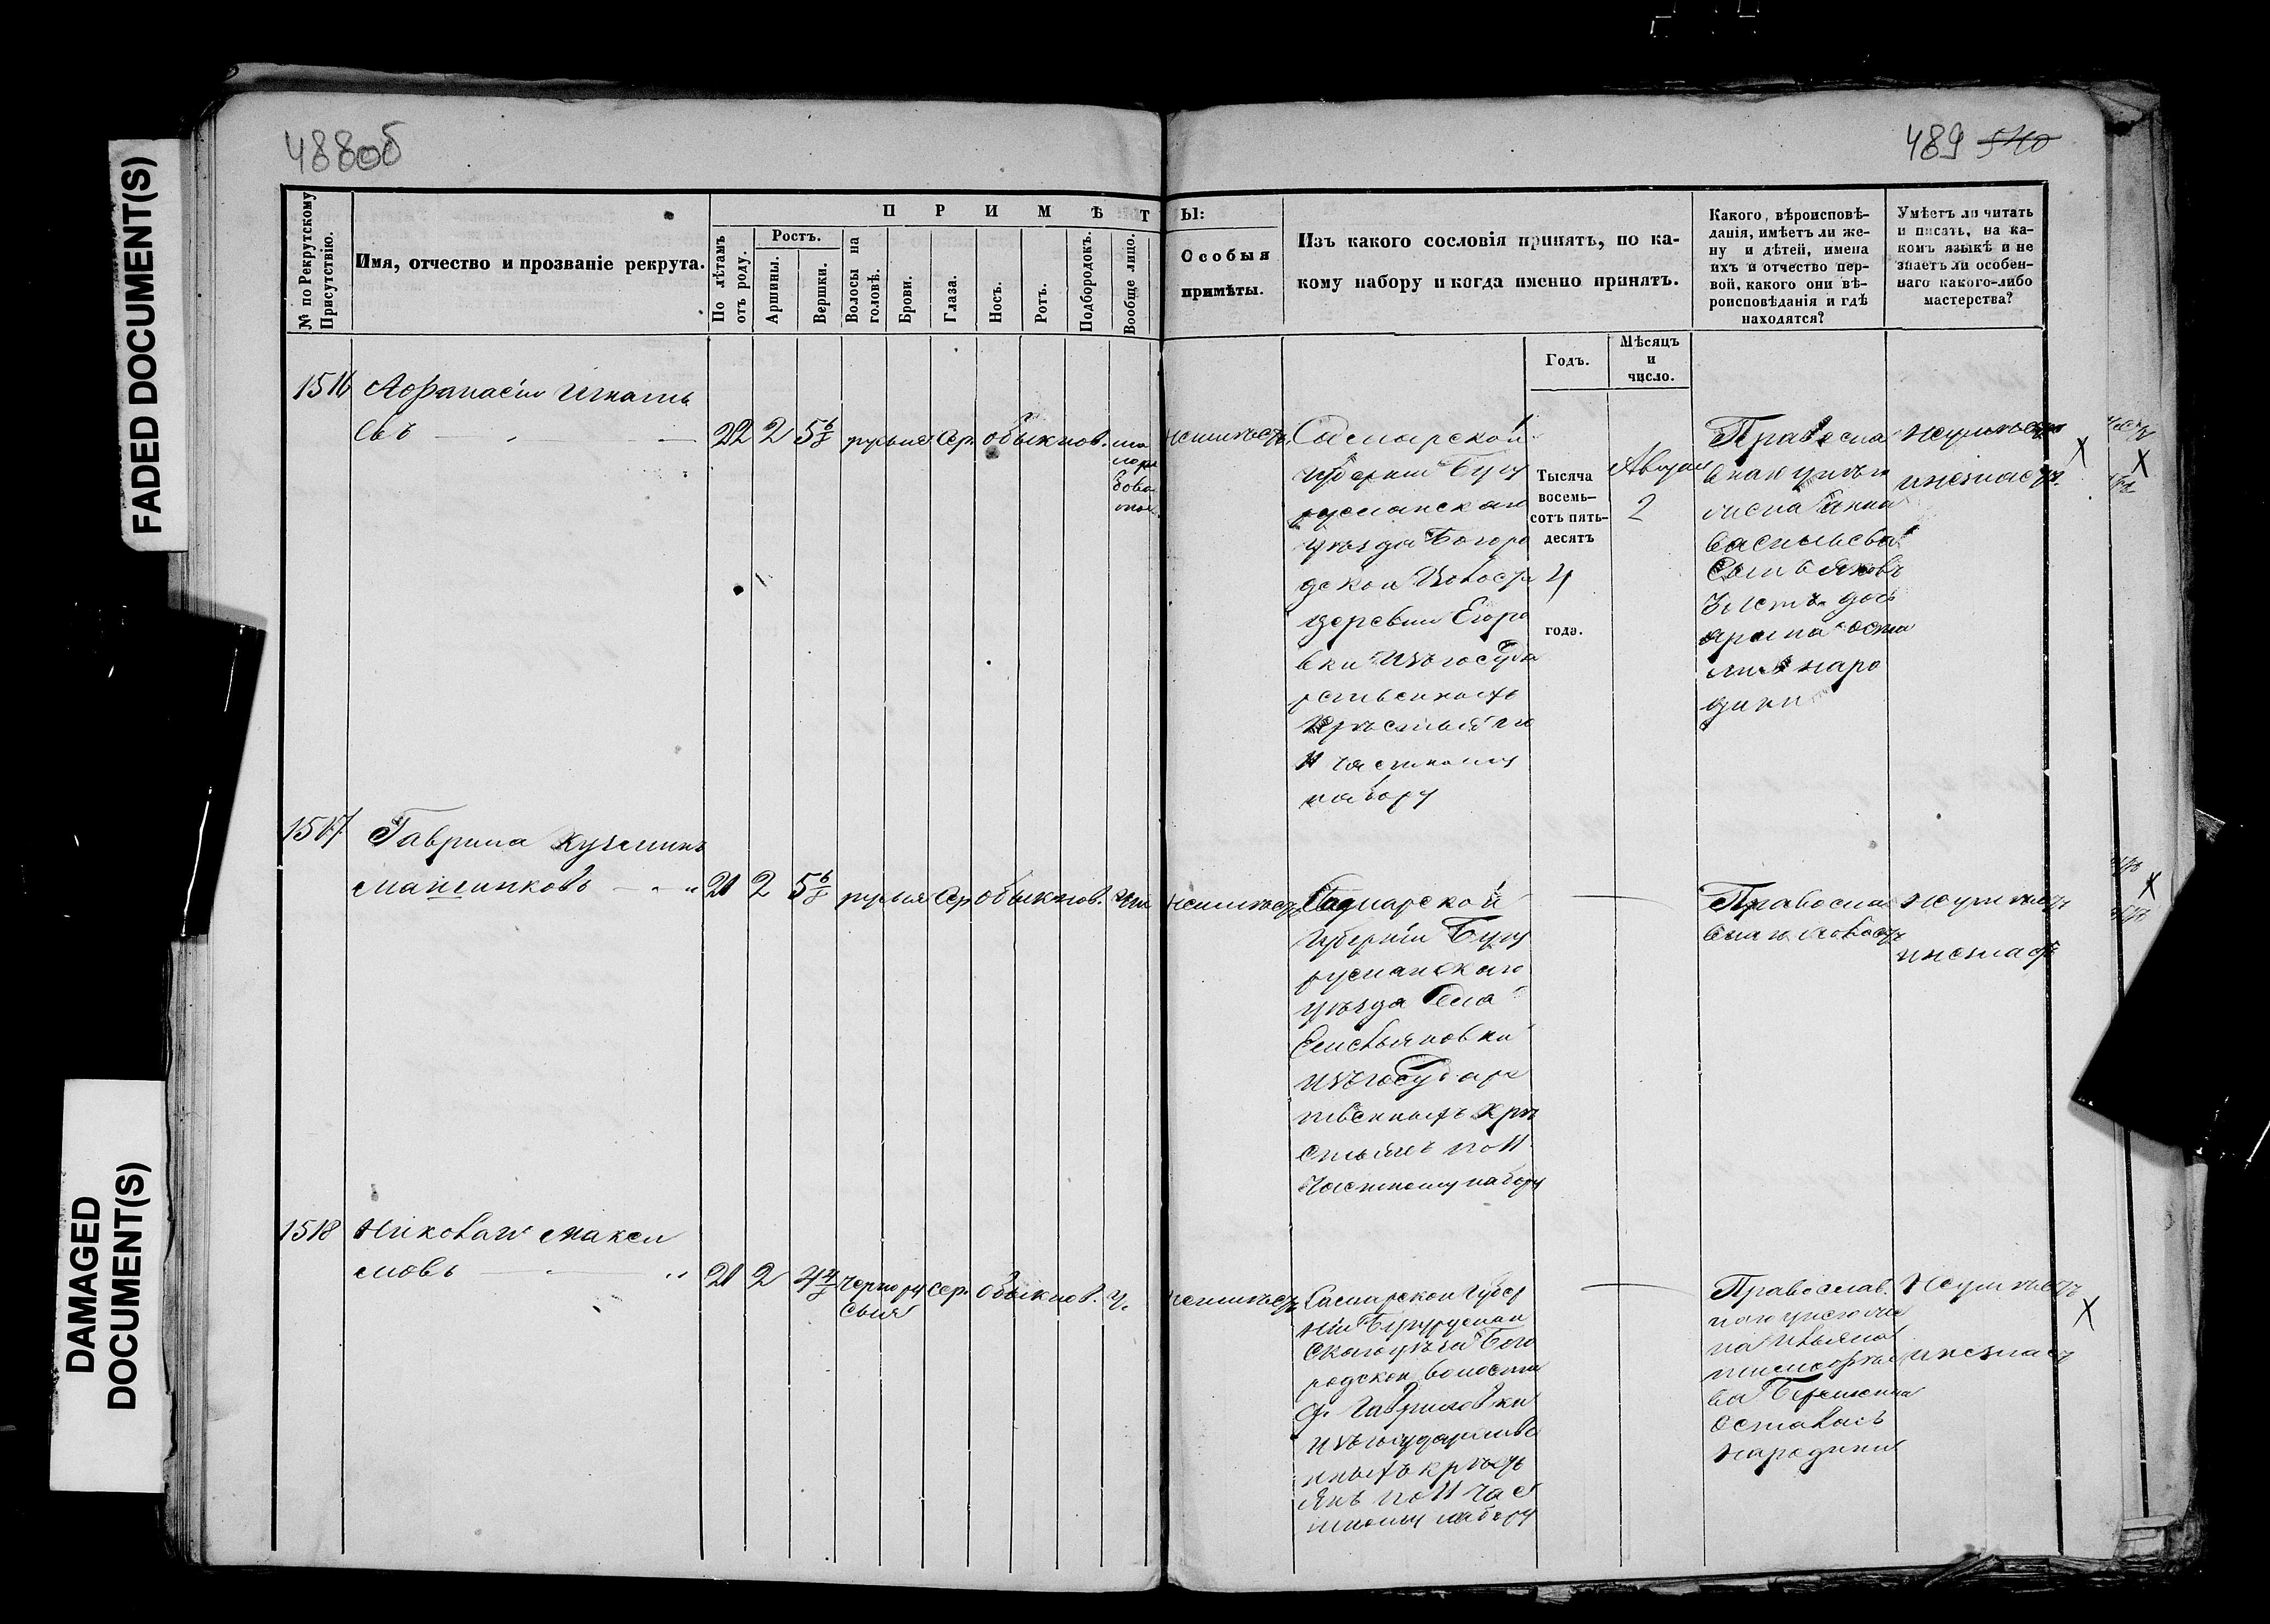 FADED DOCUMENT(S)
DAMAGED
DOCUMENT(S)
488об
489 540
№ по Рекрутскому
Присутствію.
Имя, отчество и прозваніе рекрута.
П Р И М Ѣ Т
По лѣтамъ
отъ роду.
Ростъ.
Аршины.
Вершки.
Волосы на
головѣ.
Брови.
Глаза.
Носъ.
Ротъ.
Подбородокъ.
Вообще лицо.
Ы:
Особыя
примѣты.
Изъ какого сословія принятъ, по ка-
кому набору и когда именно принятъ.
Годъ.
Мѣсяцъ
и
число.
Какого, вѣроисповѣ-
данія, имѣетъ ли же-
ну и дѣтей, имена
ихъ и отчество пер-
вой, какого они вѣ-
роисповѣданія и гдѣ
находятся?
Умѣетъ ли читать
и писать, на ка-
комъ языкѣ и не
знаетъ ли особен-
наго какого-либо
мастерства?
1516 Афанасій Игнать
евъ
22 2 5 6/8 русые сер. обыкнов.
неимѣетъ
Самарской
губерніи Бугу
русланскаго
уѣзда Богоро
дской Волост
деревни Егоро
вки изъ государ
рственныхъ
Крестьянъ по
II частному
набору
Тысяча
восемь-
сотъ пять-
десятъ
4
года.
Август
2
Православ
Васильева
остал
на роди
неумѣетъ
и незнаетъ
X
X
1517 Гаврила Кузминъ
21 2 5 6/8 русые сер обыкнов. чи
неимѣетъ
Самарской
губерніи Бугу
русланскаго
уѣзда Села
Емельяновки
изъ государс
твенныхъ кре
стьянъ по II
Частному набору
Правосла
внаго холостъ
неумѣетъ
и незнаетъ
X
1518 Николай Макси
мовъ
21 2 4 4/8 черно ру
сые
сер. обыкнов. ч.
неимѣетъ
Самарской Губер
ніи Бугуруслан
скаго уѣзда Бого
родской волости
д. Гавриловки
изъ государстве
нныхъ крестъ
янъ по II час
тному набору
Православ.
осталась
на родине
Неумѣетъ
и незнаетъ
X